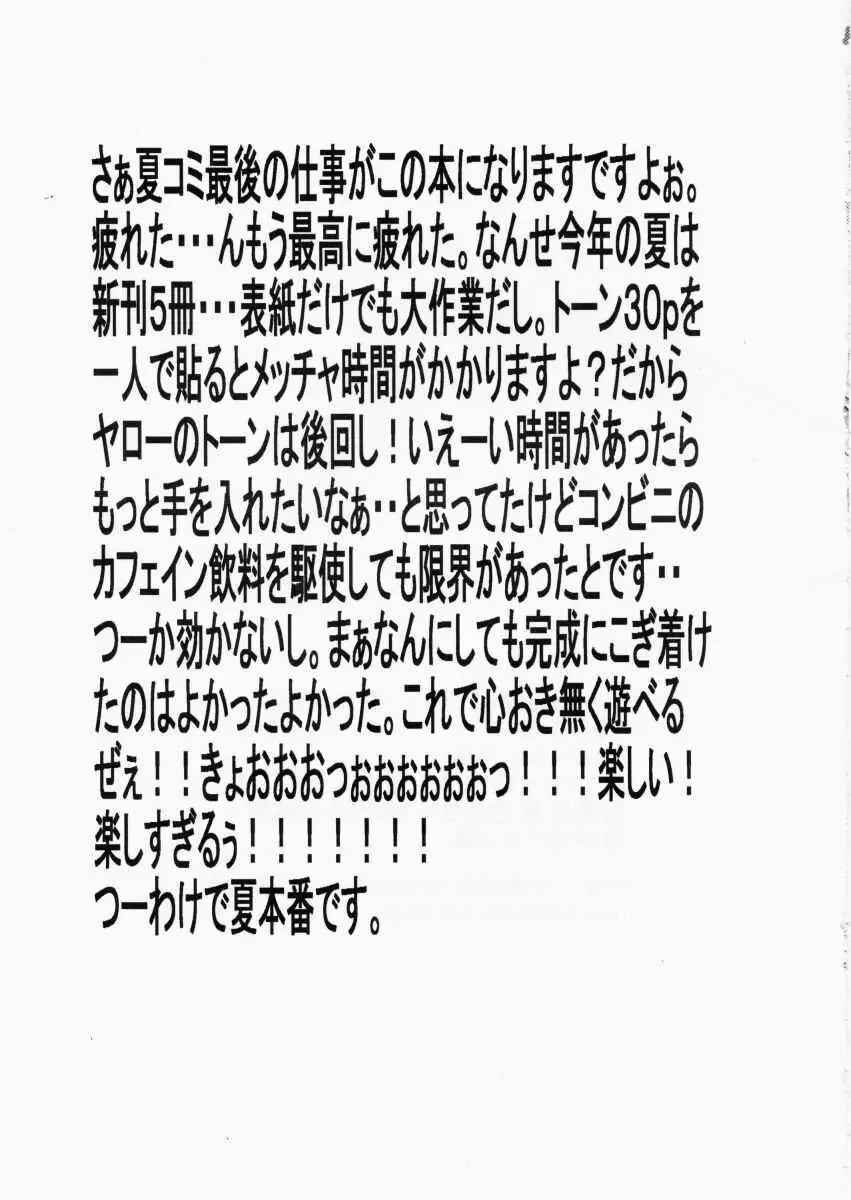 さぁ夏コミ最後の仕事がこの本になりますですよぉ。
疲れた・・・んもう最高に疲れた。なんせ今年の夏は
新刊5冊・・・表紙だけでも大作業だし。トーン30pを
一人で貼るとメッチャ時間がかかりますよ？だから
ヤローのトーンは後回し！いえーい時間があったら
もっと手を入れたいなぁ・・と思ってたけどコンビニの
カフェイン飲料を駆使しても限界があったとです・・
つーか効かないし。まぁなんにしても完成にこぎ着け
たのはよかったよかった。これで心おき無く遊べる
ぜぇ！！きょおおおっぉぉぉぉぉぉっ！！！楽しい！
楽しすぎるぅ！！！！！！！
つーわけで夏本番です。